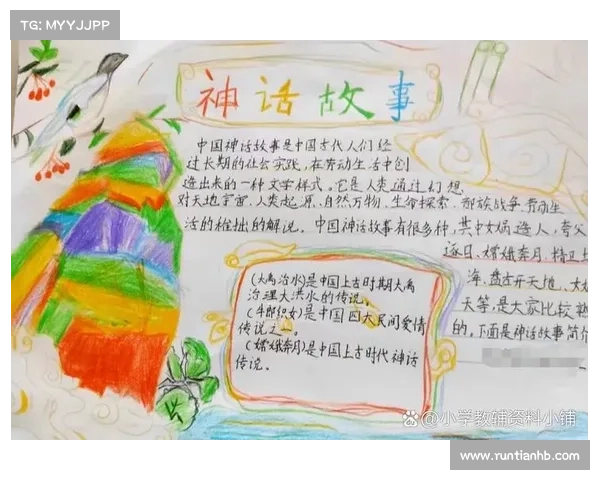 TG: MYYJJPP
神话故事
中国神话故事是中国古代人们经
过长期的社会实践,在劳动生活中创
造出来的一种文学样式。它是人类通过幻想,
对天地宇宙、人类起源、自然万物、生命探索、部族战争、劳动生
活的稚拙的解说。中国神话故事有很多种,其中女娲造人,夸父
逐日、嫦娥奔月、精卫填
海、盘古开天地、
天等,是大家比较熟
的。下面是神话故事简介
(大禹治水)是中国上古时期大禹
治理大洪水的传说。
(牛郎织女)是中国四大民间爱情
传说之一。
(嫦娥奔月)是中国上古时代神话
传说。
@小学教辅资料小铺
www.runtianhb.com